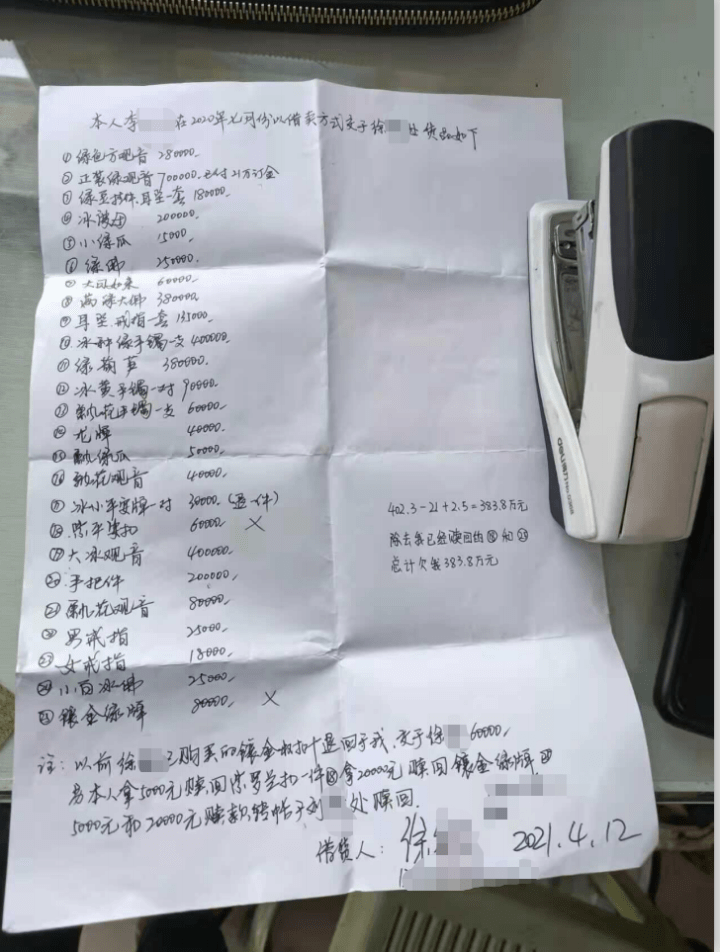 本人李 在2020年七月份以借卖方式交于徐 处货品如下
① 绿色方观音 280000.
② 正装绿观音 700000.已付21万订金
③ 绿豆挂件.耳坠一套 180000.
④ 冰 200000
⑤ 小绿瓜 15000.
⑥ 绿佛 250000.
⑦ 大日如来 60000.
⑧ 满绿大佛 380000
⑨ 耳坠.戒指一套 135000.
⑩ 冰种绿手镯一支 400000.
⑪ 绿 380000.
⑫ 冰黄手镯一对 90000.
⑬ 飘花手镯一支 60000.
⑭ 龙牌 40000.
⑮ 飘绿瓜 50000.
⑯ 飘花观音 40000.
⑰ 冰小平安牌一对 30000.(退一件)
⑱ 60000. ×
⑲ 大冰观音 400000.
⑳ 手把件 200000.
㉑ 飘花观音 80000.
㉒ 男戒指 25000.
㉓ 女戒指 18000.
㉔ 小白冰佛 25000.
㉕ 镶金绿牌 80000. ×
402.3-21+2.5=383.8万元
除去我已经赎回的⑱和㉕
总计欠我383.8万元
注:以前徐 已购买的镶金 扣退回于我.交于徐 60000.
另本人拿5000元赎回紫罗兰扣一件⑱拿20000元赎回镶金绿牌㉕
5000元和20000元赎款转帐于刘 处赎回.
借货人:徐 2021.4.12
deli得力